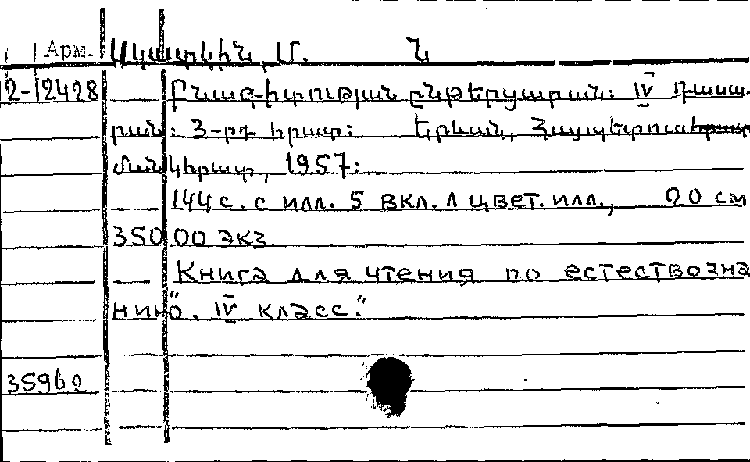 Арм. Սկատկին, Մ. Ն
2-12428 Բնագիտության ընթերցարան: IV դասա-
րան: 3-րդ հրատ: Երևան, Հայպետուս
մանկհրատ, 1957:
144 с. с илл. 5 вкл. л цвет. илл., 20 см
35000 экз
Книга для чтения по естествозна
нию". IV класс."
35960